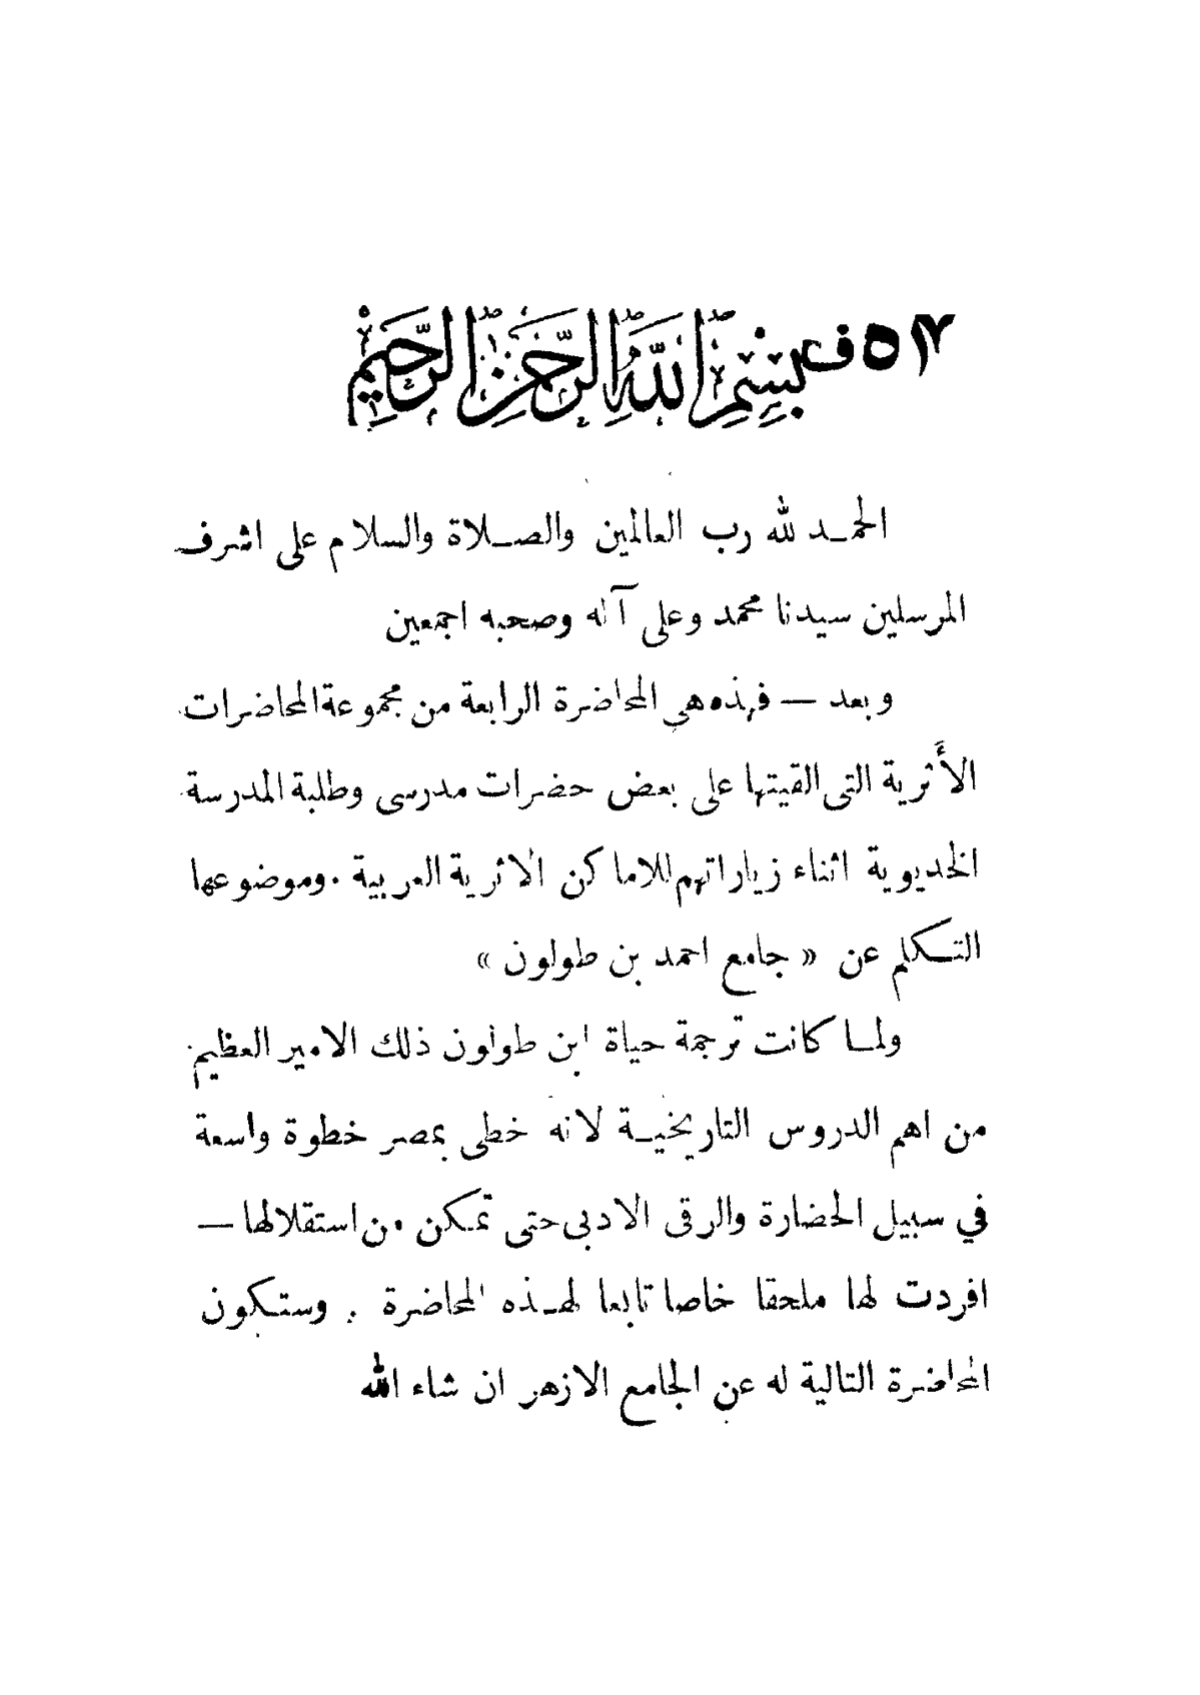 بِسْمِ اللَّهِ الرَّحْمَنِ الرَّحِيمِ
الحمـد لله رب العالمين والصـلاة والسلام على اشرف
المرسلين سيدنا محمد وعلى آله وصحبه اجمعين
وبعد — فهذه هي المحاضرة الرابعة من مجموعة المحاضرات
الأَثرية التى القيتها على بعض حضرات مدرسى وطلبة المدرسة
الخديوية اثناء زياراتهم للاماكن الاثرية العربية . وموضوعها
التـكلم عن « جامع احمد بن طولون »
ولمـا كانت ترجمة حياة ابن طولون ذلك الامير العظيم
من اهم الدروس التاريخيـة لانه خطى بمصر خطوة واسعة
في سبيل الحضارة والرقى الادبى حتى تمكن من استقلالها —
افردت لها ملحقا خاصا تابعا لهـذه المحاضرة . وستكون
المحاضرة التالية له عن الجامع الازهر ان شاء الله